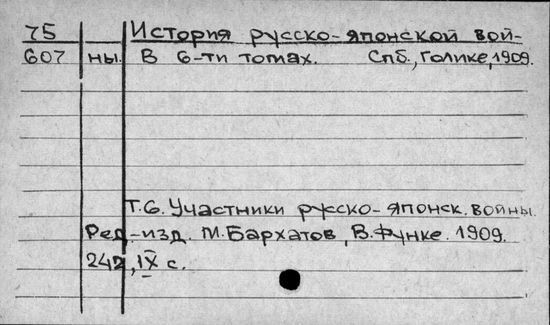 75 История русско-японской вой-
607 ны. В 6-ти томах. Спб., Голике, 1909.
Т.6. Участники русско-японск. войны.
Ред.-изд. М. Бархатов, В. Функе. 1909.
242, IX с.